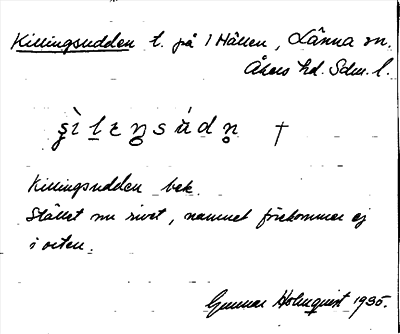 Killingsudden t. på 1 Hällen, Länna sn.
Åkers hd. Sdm. l.
ʂìlɛŋsúdn̥ †
Killingsudden bek.
Stället nu rivet, namnet förekommer ej
i orten.
Gunnar Holmquist 1935.